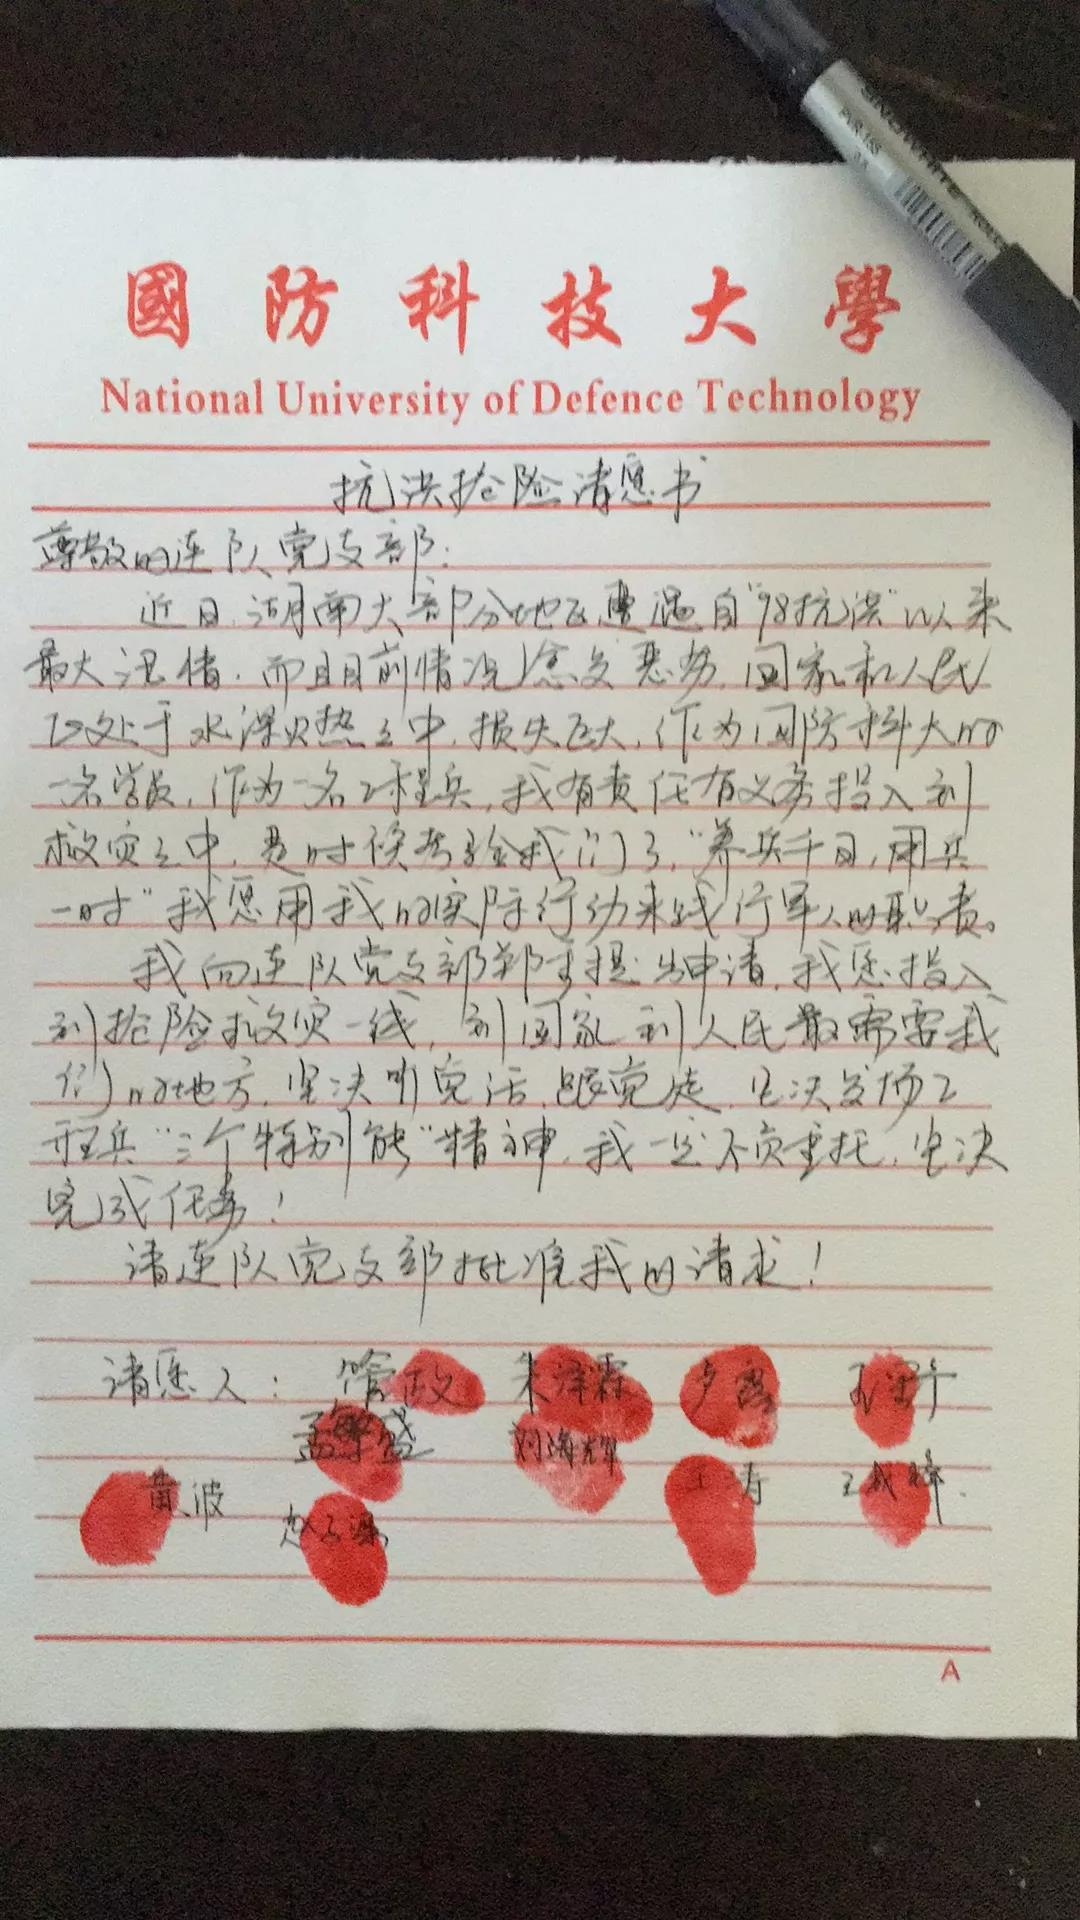 國防科技大學
National University of Defence Technology
抗洪抢险请愿书
尊敬的连队党支部：
近日，湖南大部分地区遭遇自“98抗洪”以来
最大汛情，而且目前情况愈发恶劣，国家和人民
正处于水深火热之中，损失巨大，作为国防科大的
一名学员，作为一名工程兵，我有责任有义务投入到
救灾之中，是时候考验我们了，“养兵千日，用兵
一时”我愿用我的实际行动来践行军人的职责。
我向连队党支部郑重提出申请，我愿投入
到抢险救灾一线，到国家到人民最需要我
们的地方，坚决听党话，跟党走，坚决发扬工
程兵“三个特别能”精神，我一定不负重托，坚决
完成任务！
请连队党支部批准我的请求！
请愿人：管政 朱泽霖 卢
孟繁盛 刘海辉 王涛 王
黄波 赵
A